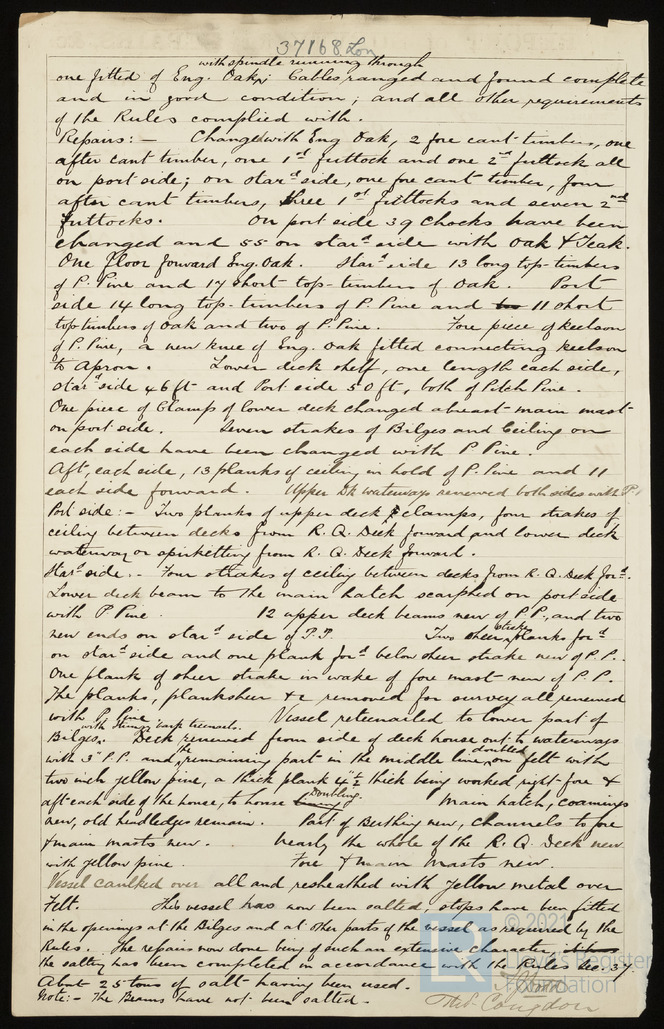 37168 Lon
with spindle running through
one fitted of Eng. Oak; Cables ranged and found complete
and in good condition; and all other requirements
of the Rules complied with.
Repairs:- Changed with Eng Oak, 2 fore cant timbers, one
after cant timber, one 1st futtock and one 2nd futtock all
on port side; on stard side, one fore cant timber, four
after cant timbers, three 1st futtocks and seven 2nd
futtocks. On port side 39 Chocks have been
changed and 55 on stard side with Oak & Teak.
One floor forward Eng. Oak. Stard side 13 long top-timbers
of P. Pine and 17 short top-timbers of Oak. Port
side 14 long top-timbers of P. Pine and 11 short
top timbers of Oak and two of P. Pine. Fore piece of keelson
of P. Pine, a new knee of Eng. Oak fitted connecting keelson
to apron. Lower deck shelf, one length each side,
stard side 46 ft and Port side 50 ft, both of Pitch Pine.
One piece of Clamps of lower deck changed abreast main mast
on port side. Seven strakes of Bilges and Ceiling on
each side have been changed with P Pine.
Aft, each side, 13 planks of ceiling in hold of P. Pine and 11
each side forward. Upper Dk waterways renewed both sides with P.
Port side:- Two planks of upper deck clamps, four strakes of
ceiling between decks from R. Q. Deck forward and lower deck
waterway or spirketting from R. Q. Deck forward.
Stard side.- Four strakes of ceiling between decks from R. Q. Deck ford.
Lower deck beam to the main hatch scarphed on port side
with P Pine. 12 upper deck beams new of P.P., and two
new ends on stard side of P.P. Two sheer strake planks ford
on stard side and one plank ford below sheer strake new of P.P.
One plank of sheer strake in wake of fore mast new of P.P.
The planks, planksheer &c removed for survey all renewed
with P Pine Vessel retreenailed to lower part of
with through treenails.
Bilges. Deck renewed from side of deck house out to waterways
with 3" P.P. and the remaining part in the middle line, doubled on felt with
two inch yellow pine, a thick plank 4" thick being worked right fore &
aft each side of the house, to house Doubling. Main hatch, coamings
new, old headledges remain. Part of Berthing new, channels to fore
& main masts new. Nearly the whole of the R. Q. Deck new
with yellow pine. Fore & main masts new.
Vessel caulked over all and resheathed with yellow metal over
Felt. This vessel has now been salted, stops have been fitted
in the openings at the Bilges and at other parts of the vessel as required by the
Rules. The repairs now done being of such an extensive character
the salting has been completed in accordance with the Rules Sec. 37.
About 25 tons of salt having been used.
Note:- The Beams have not been salted.
Congdon
© 2021
Lloyd's Register
Foundation